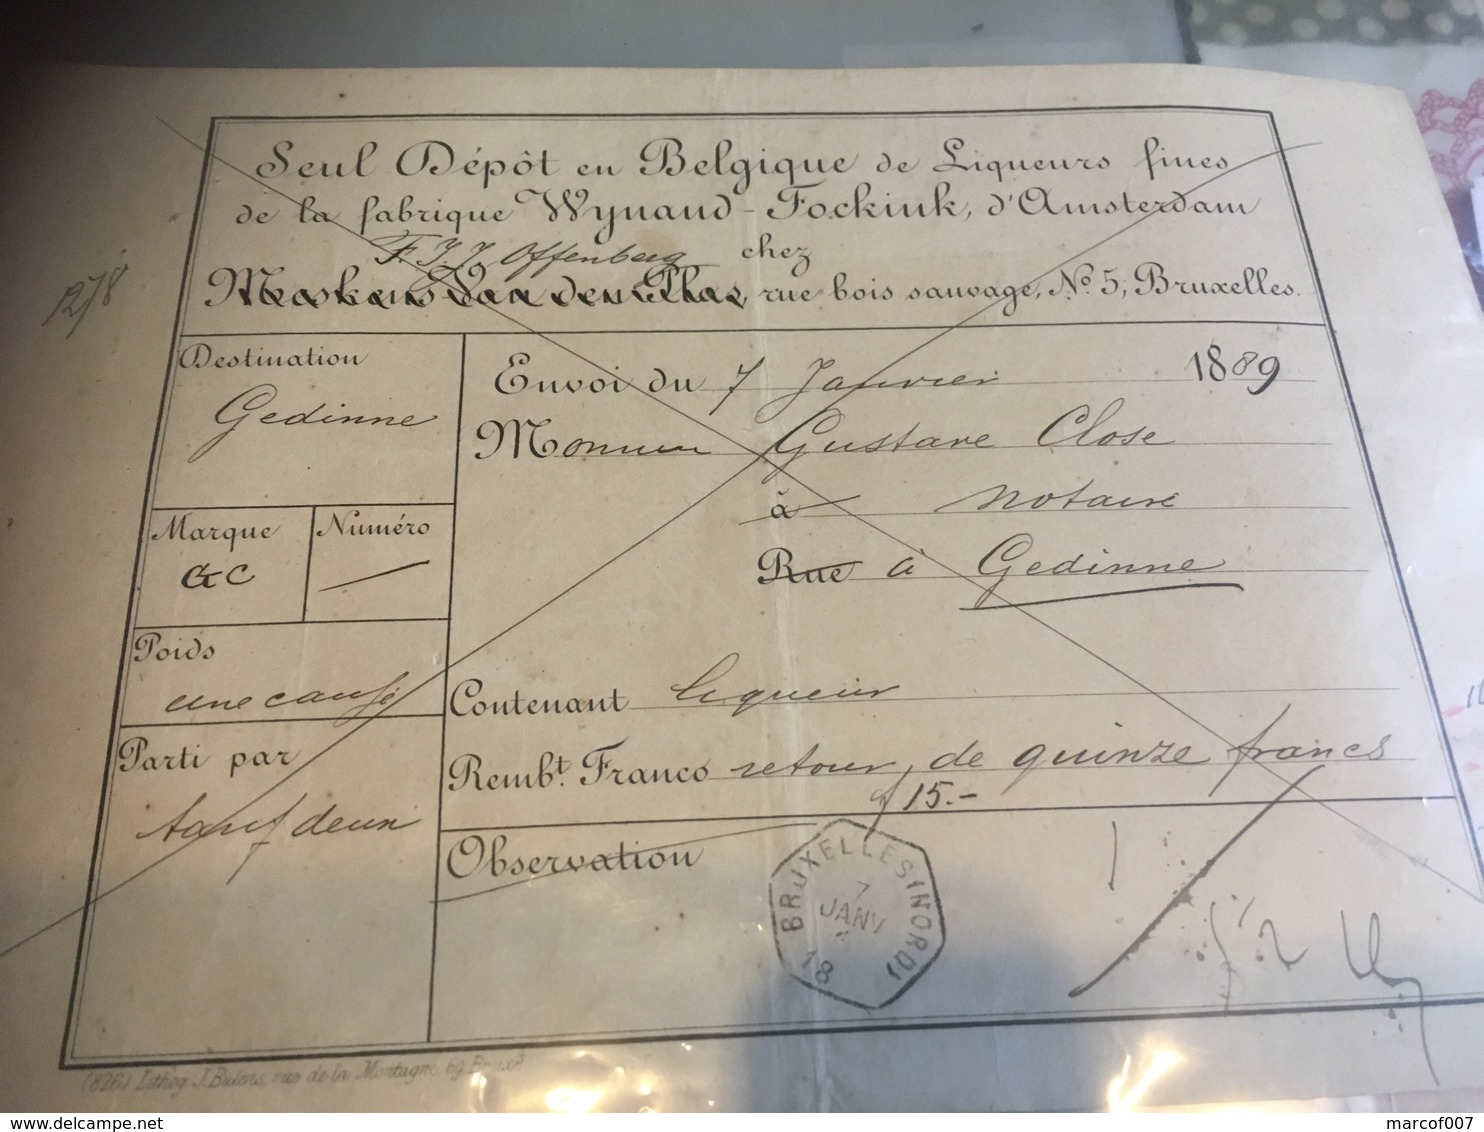 Seul Dépôt en Belgique de Liqueurs fines
de la fabrique Wynand-Fockink, d'Amsterdam
F. J. J. Offenberg chez
rue bois sauvage, No. 5, Bruxelles.
1278
Destination
Gedinne
Envoi du 7 Janvier 1889
Monsieur Gustave Close
à notaire
Rue à Gedinne
Marque
GC
Numéro
Poids
une caisse
Contenant liqueur
Parti par
Rembt. Franco retour, de quinze francs
f 15.-
Observation
BRUXELLES (NORD)
7
JANV
18
(826) Lithog. J. Bulens, rue de la Montagne, 69, Bruxs
marcof007